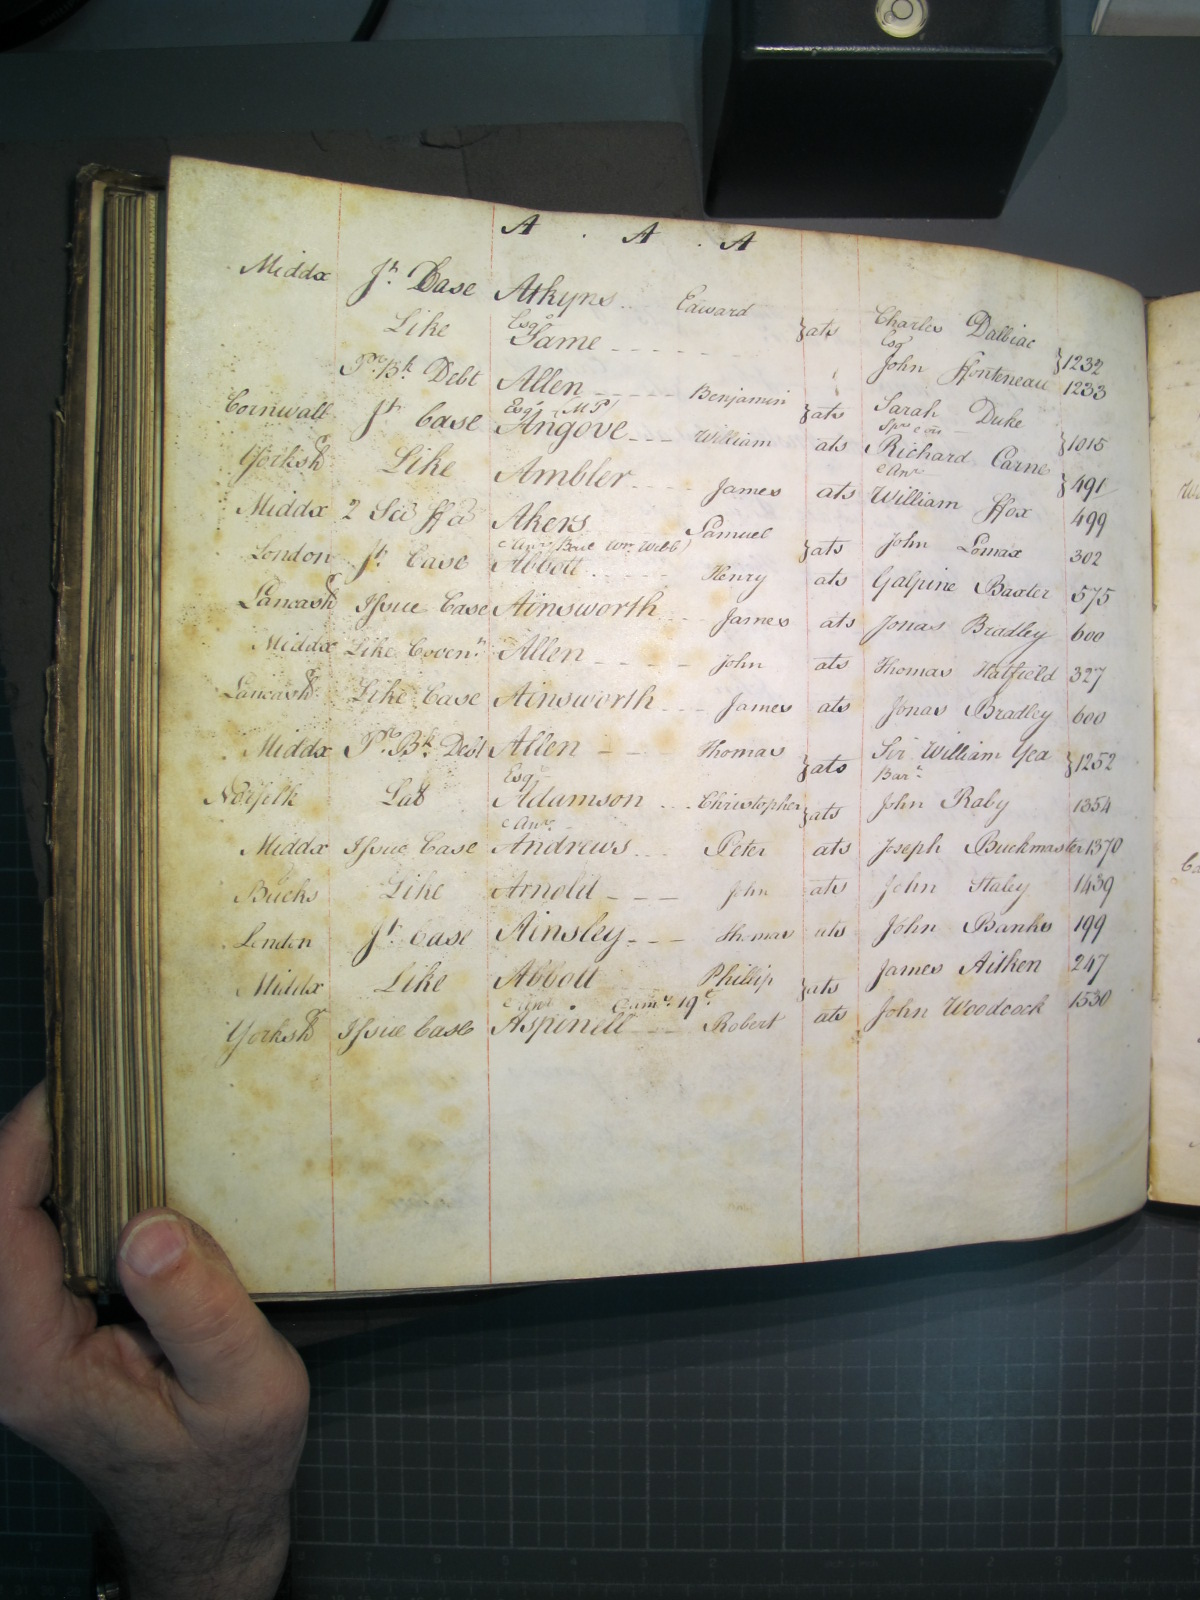 A . A . A
Middx Jt. Case Atkyns Edward Esqr. }ats Charles Dalbiac Esq }1232
Like Same - - - - - - John ffonteneau 1233
Pr. Bk. Debt Allen - - - - - Benjamin Esqr. (MP) }ats Sarah Duke }1015
Cornwall Jt. Case Angove - - - William ats Richard Carne & Anr }491
Yorksh Like Ambler - - - - James ats William ffox 499
Middx 2 Sci ffa Akers Samuel & Anr (Bail Wm. Webb) }ats John Lomax 302
London Jt. Case Abbott - - - - Henry ats Galpine Baxter 575
Lancash Issue Case Ainsworth - - James ats Jonas Bradley 600
Middx Like Coven.t Allen - - - - John ats Thomas Hatfield 327
Lancash Like Case Ainsworth - - - James ats Jonas Bradley 600
Middx Pr. Bk. Debt Allen - - Thomas Esqr. }ats Sir William Yea Bart. }1252
Norfolk Adamson - - - Christopher & Anr. }ats John Raby 1354
Middx Issue Case Andrews - - - Peter ats Joseph Buckmaster 1370
Bucks Like Arnold - - - John ats John Staley 1439
London Jt. Case Ainsley - - - Thomas ats John Banks 199
Middx Like Abbott Phillip & Anr. }ats James Aitken 247
Yorksh Issue Case Aspinell - - - Robert ats John Woodcock 1530